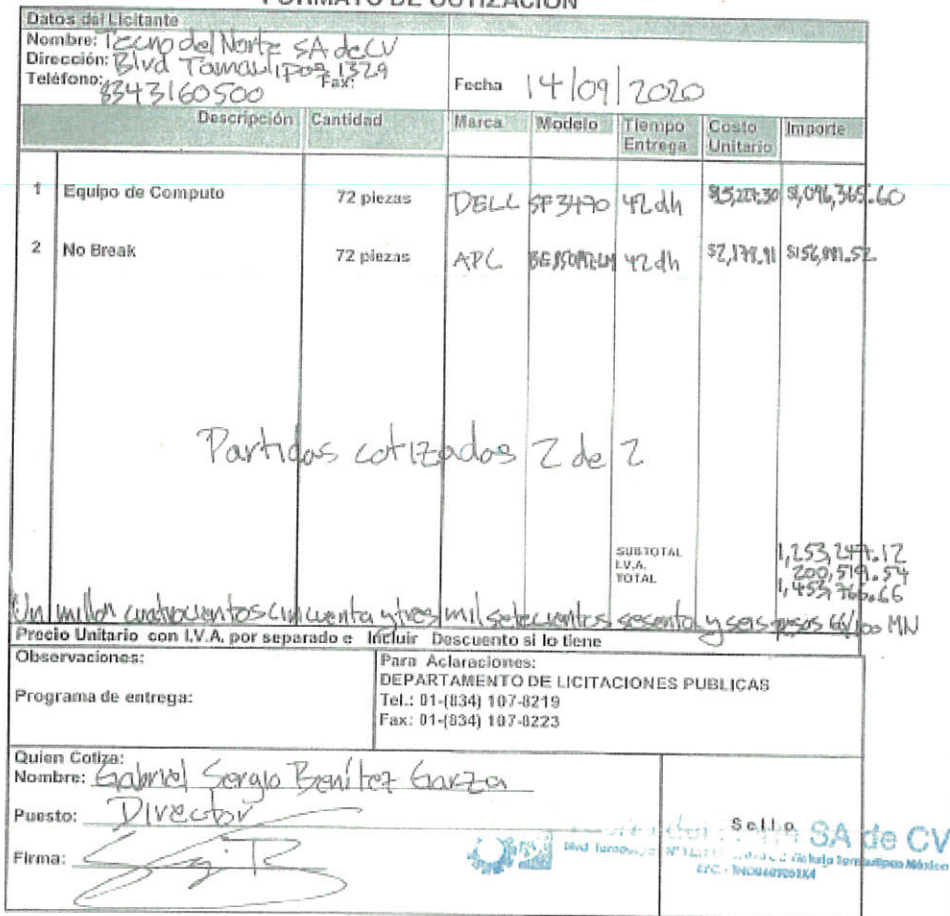 FORMATO DE COTIZACIÓN
Datos del Licitante
Nombre: Tecno del Norte SA de CV
Dirección: Blvd Tamaulipas 1329
Teléfono: Fax:
8343160500
Fecha 14/09/2020
Descripción Cantidad Marca Modelo Tiempo Entrega Costo Unitario Importe
1 Equipo de Computo 72 piezas DELL SF 3470 42 dh $1,096,365.60
2 No Break 72 piezas APC 42 dh
Partidas cotizadas 2 de 2
SUBTOTAL 1,253,247.12
I.V.A. 200,519.54
TOTAL 1,453,766.66
Un millon cuatrocientos cincuenta y tres mil setecientos sesenta y seis pesos 66/100 MN
Precio Unitario con I.V.A. por separado e Incluir Descuento si lo tiene
Observaciones:
Programa de entrega:
Para Aclaraciones:
DEPARTAMENTO DE LICITACIONES PUBLICAS
Tel.: 01-(834) 107-8219
Fax: 01-(834) 107-8223
Quien Cotiza:
Nombre: Gabriel Sergio Benítez Garza
Puesto: Director
Firma:
Sello
SA de CV